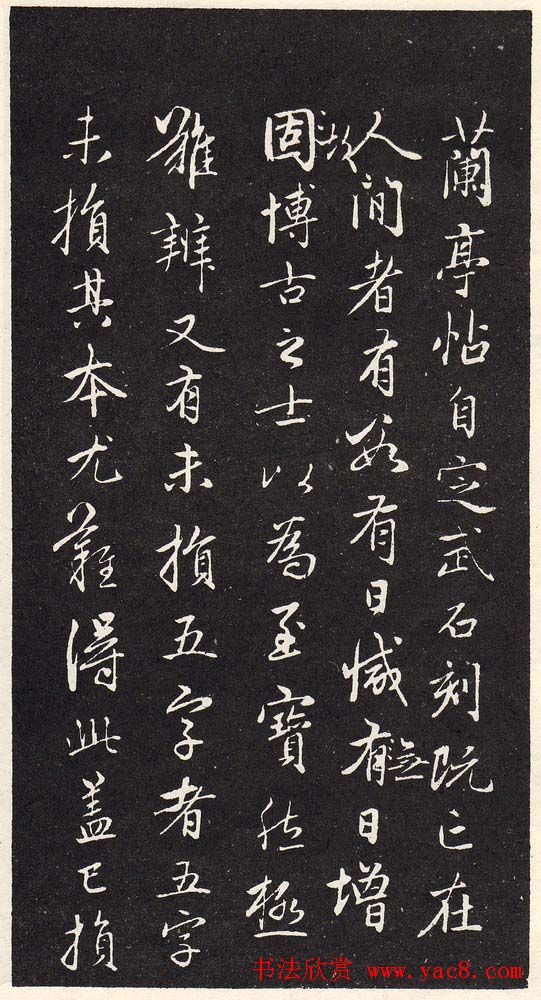 蘭亭帖自定武石刻既亡在
人間者有數有日減有無日增
固故博古之士以為至寶然極
難辨又有未損五字者五字
未損其本尤難得此蓋已損
书法欣赏 www.yac8.com